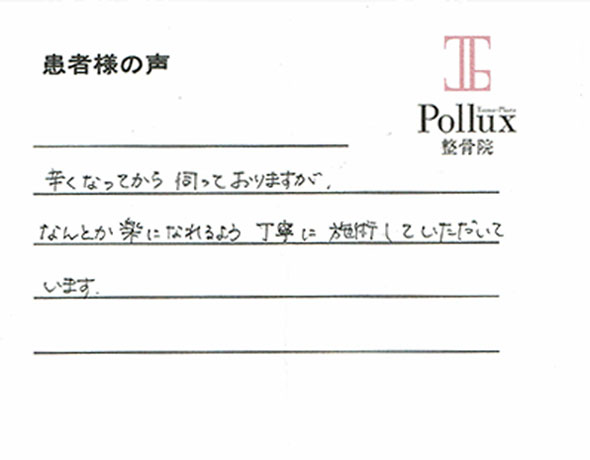 患者様の声
Pollux
Tama-Plaza
整骨院
辛くなってから 伺っておりますが、
なんとか楽になれるよう 丁寧に 施術していただいて
います.